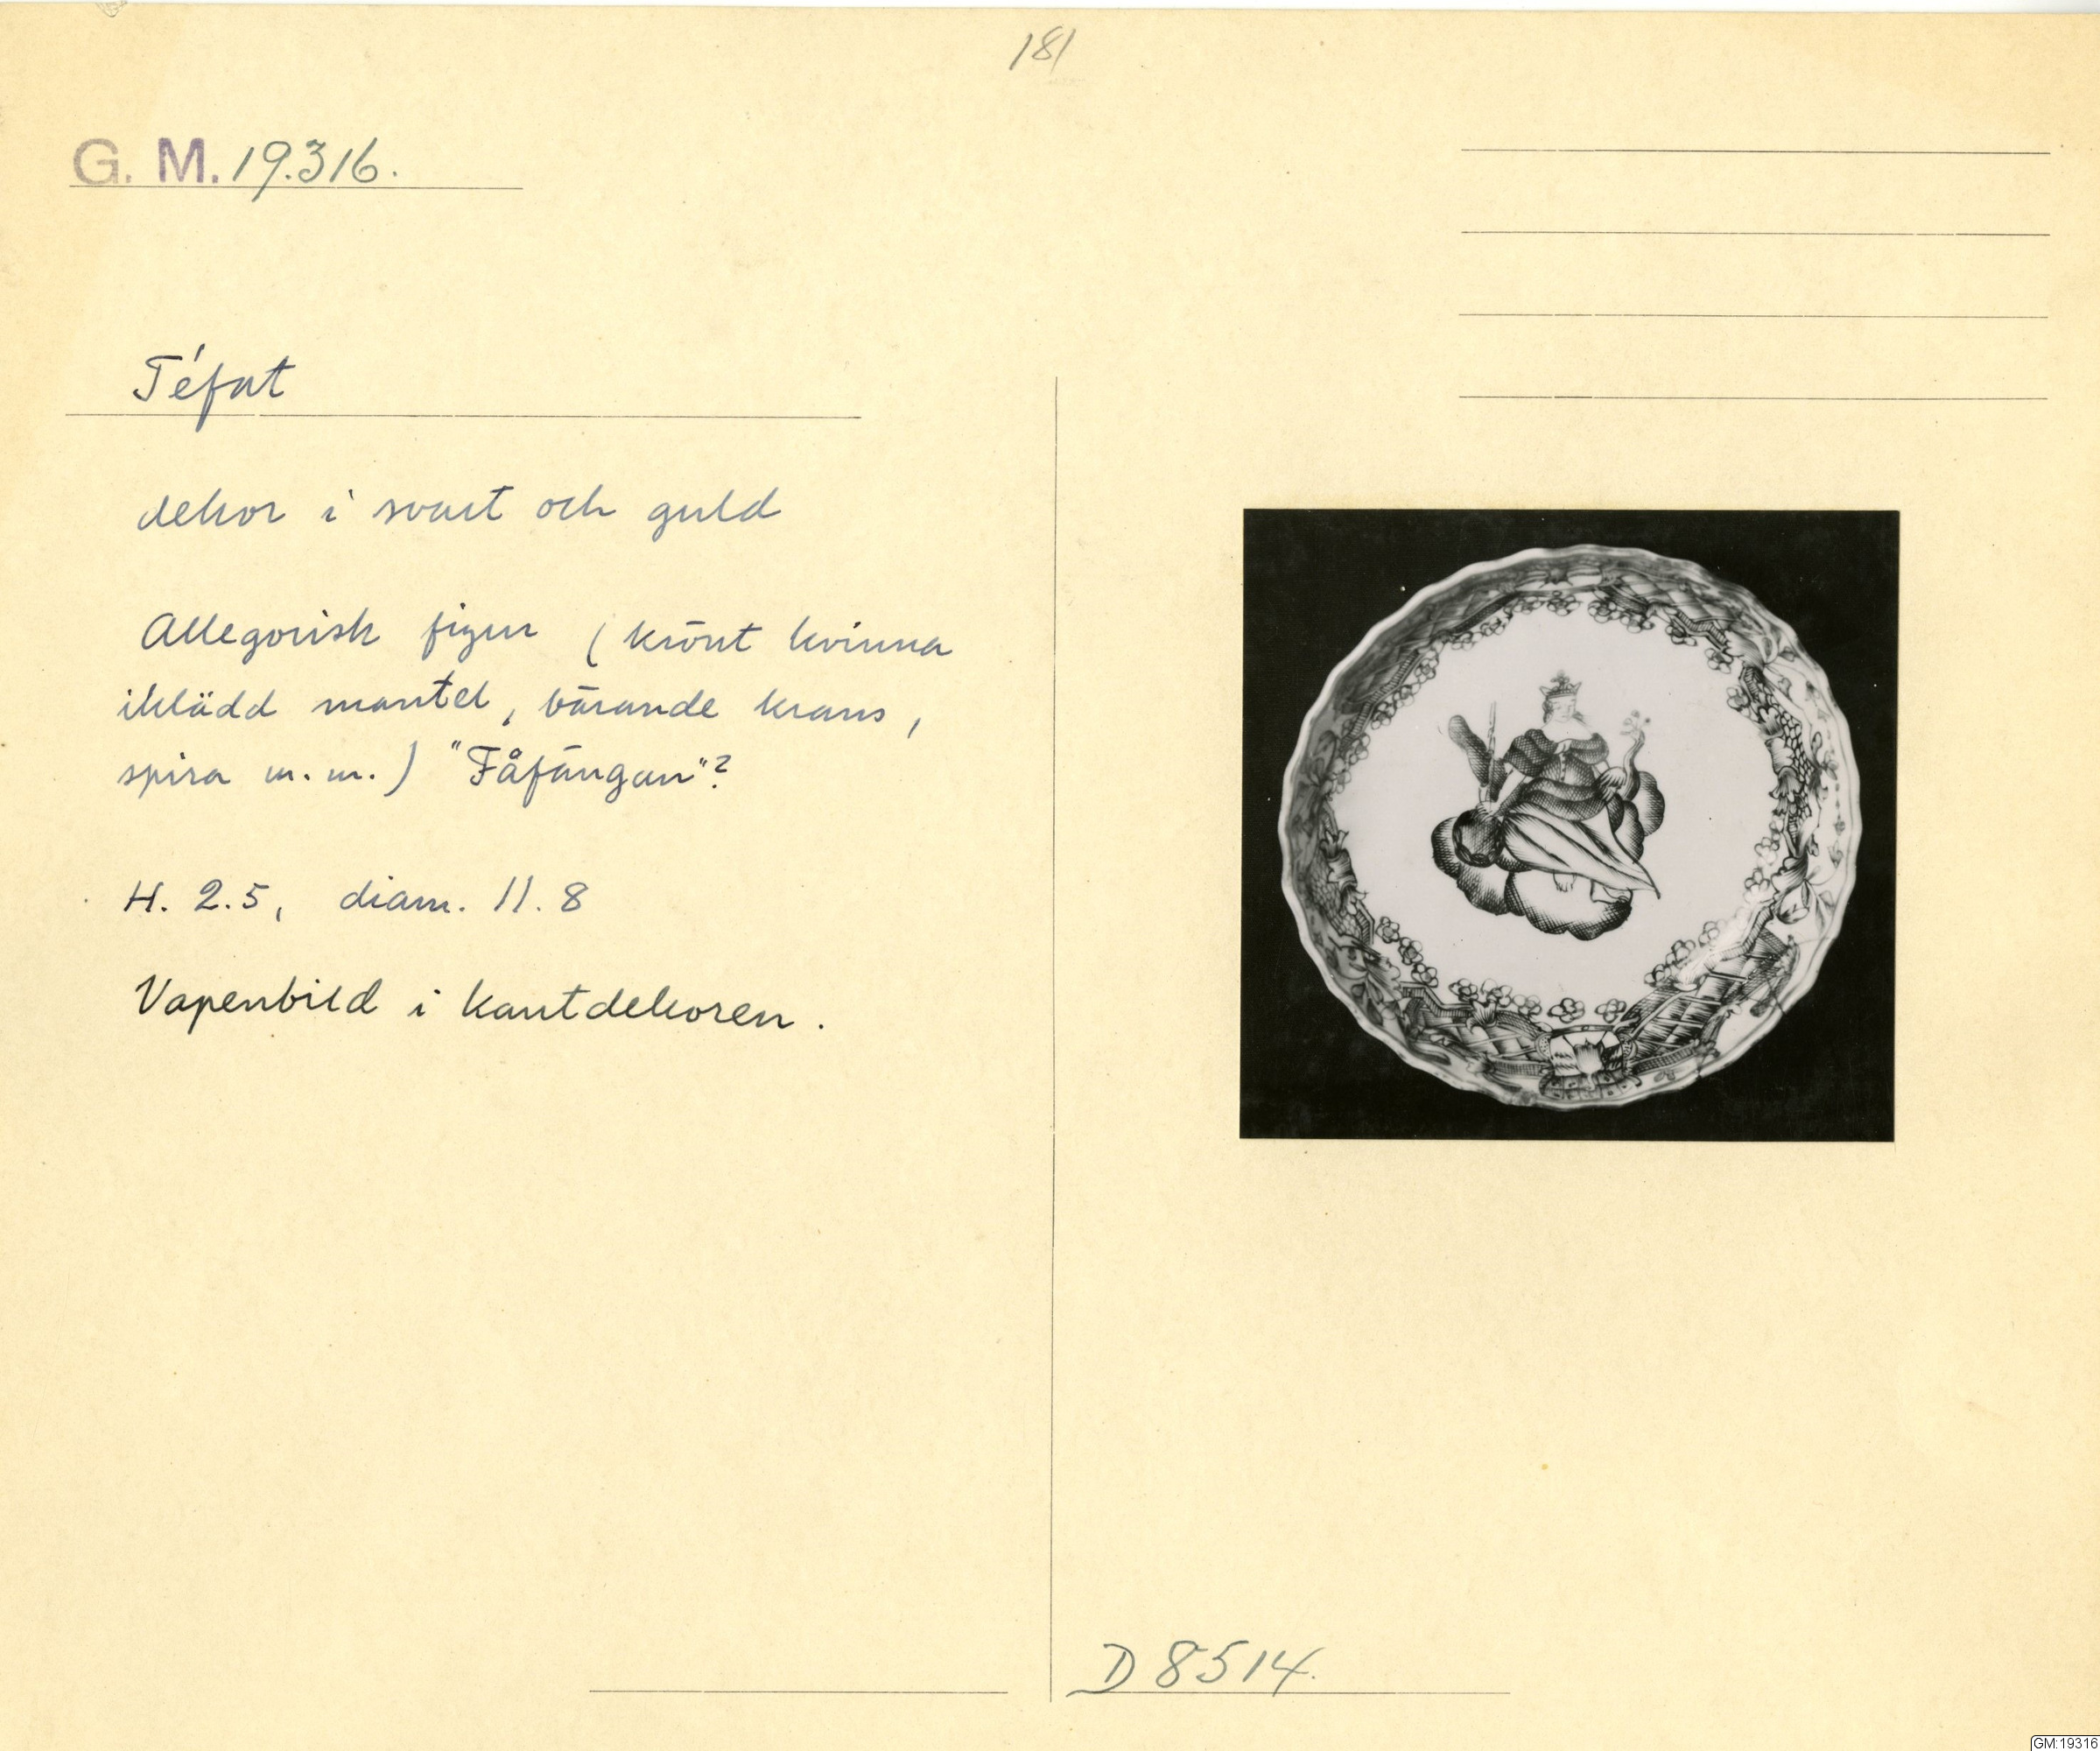 181
G. M. 19.316.
Téfat
dekor i svart och guld
Allegorisk figur (krönt kvinna
iklädd mantel, bärande krans,
spira m.m.) "Fåfängan"?
H. 2.5, diam. 11.8
Vapenbild i kantdekoren.
D 8514.
GM:19316